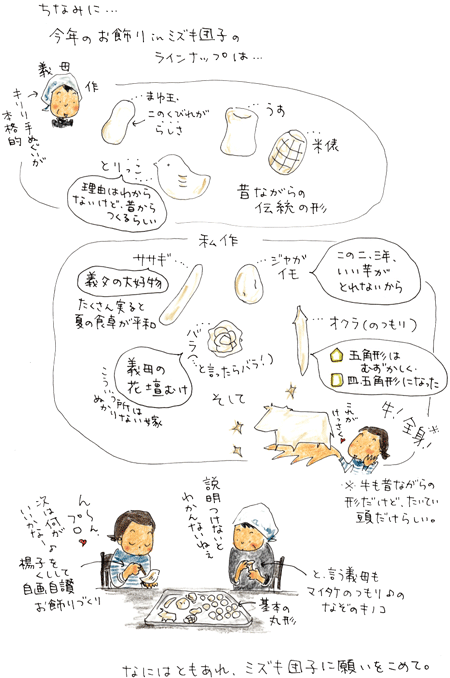 ちなみに…
今年のお飾りinミズキ団子の
ラインナップは…
義母
作
キリリ手ぬぐいが
本格的
まゆ玉、
このくびれが
らしさ
うす
米俵
とりっこ
理由はわから
ないけど、昔から
つくるらしい
昔ながらの
伝統の形
私作
ササギ
義父の大好物
たくさん実ると
夏の食卓が平和
ジャガ
イモ
この二、三年、
いい芋が
とれないから
バラ
(…と言ったらバラ!)
義母の
花壇むけ
こういう所は
ぬかりない嫁
オクラ(のつもり)
五角形は
むずかしく、
四角形になった
そして
牛!全身!※
これが
けっさく
※牛も昔ながらの
形だけど、たいてい
頭だけらしい。
ん〜
プロ
次は何が
いいかな♪
楊子を
くしして
自画自讃
お飾りづくり
説明つけないと
わかんないねぇ
基本の
丸形
と、言う義母も
マイタケのつもり♪の
なぞのキノコ
なにはともあれ、ミズキ団子に願いをこめて。